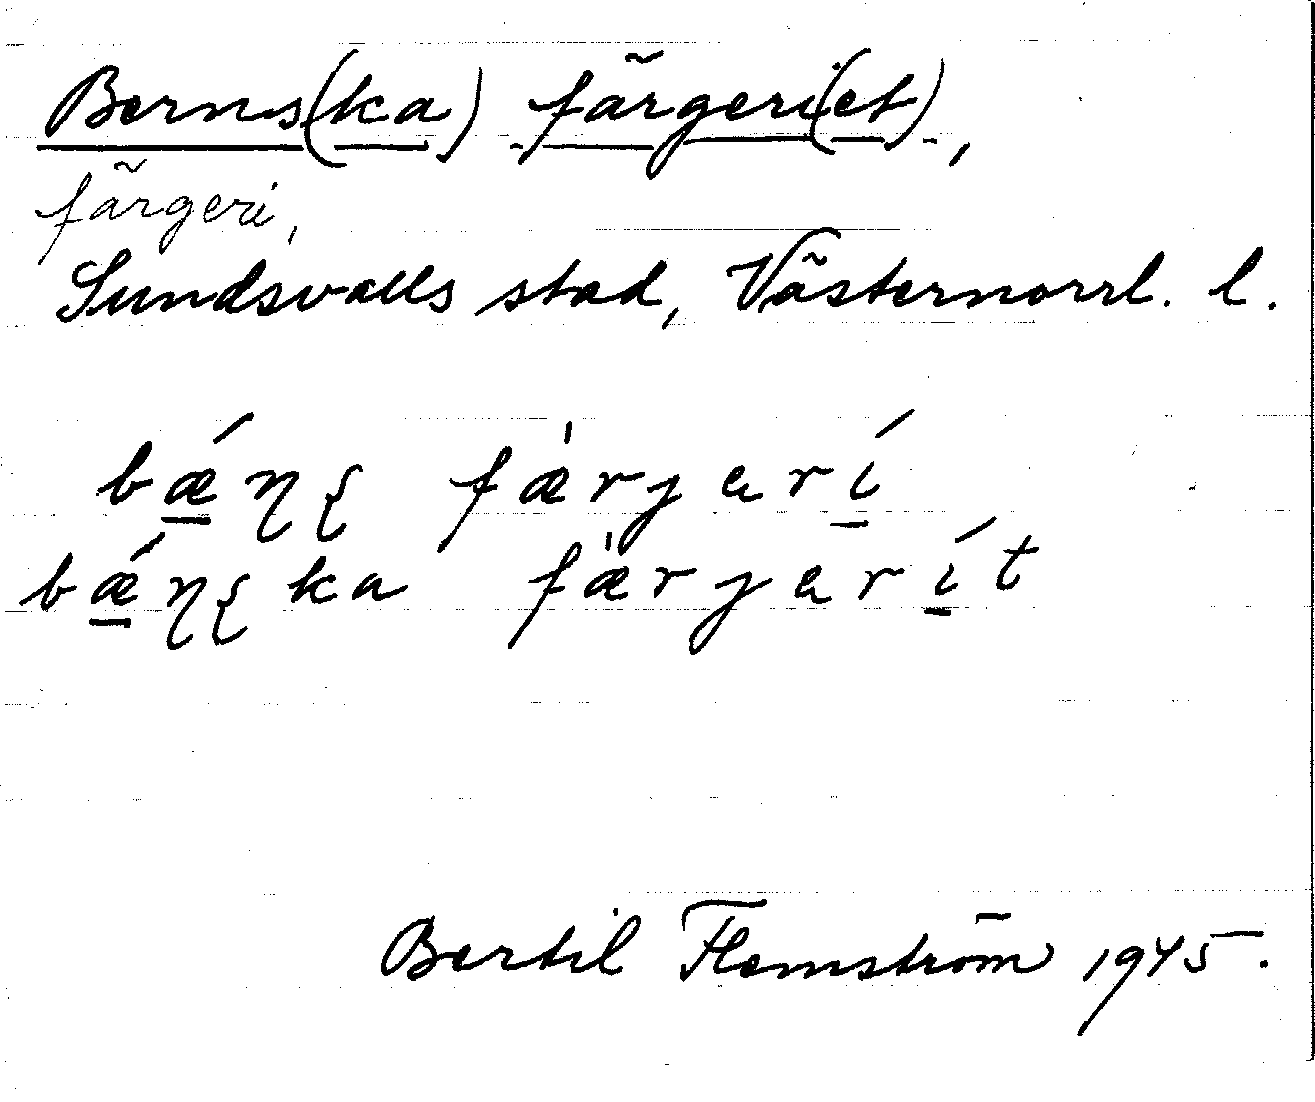 Berns(ka) färgeri(et),
färgeri,
Sundsvalls stad, Västernorrl. l.
bǽɳʂ fæ̀rjerí
bǽɳʂka fæ̀rjerít
Bertil Flemström 1945.